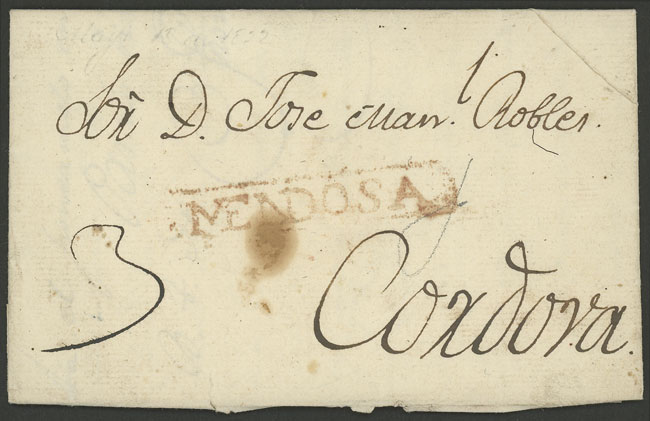 Sor. D. Jose Manl. Robles.
MENDOSA
3
Cordova.